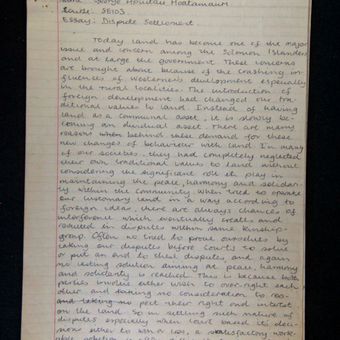 George Houdau Hoatamauri
Course: SE103.
Essay: Dispute Settlement
Today land has become one of the major
issue and concern among the Solomon Islanders
and at large the government. These concerns
are brought about because of the crashing in-
fluences of western development especially
in the rural localities. The introduction of
foreign development had changed our tra-
ditional values to land. Instead of having
land as a communal asset, it is slowly be-
coming an individual asset. There are many
reasons behind these demand for these
new changes of behaviour with land. In many
of our societies, they had completely neglected
their own traditional values to land without
considering the significant role it play in
maintaining the peace, harmony and solidar-
ity within the community. When tried to
our customary land in a way according to
foreign ideas, there are always chances of
interference which eventually create and
reduced in disputes within same kinship-
group. Often we tried to prove ourselves by
taking our disputes before Courts to solve
or put an end to these disputes, and again
no lasting solution aiming at peace, harmony
and solidarity is reached. This is because both
parties involve either wish to over-right each
other and having no consideration to
pect their right and interest
on the land. So in settling such nature of
disputes especially when Court based its deci-
sion either to win or loss, a satisfactory work-
able solution is